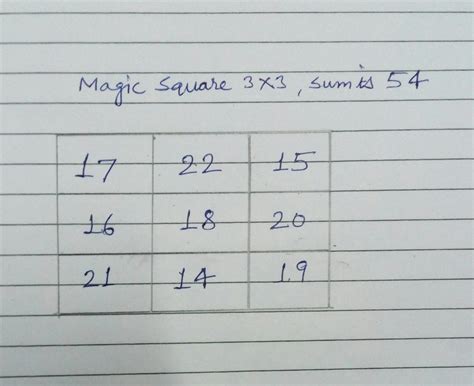 Magic Square 3x3, sum is 54
17 22 15
16 18 20
21 14 19